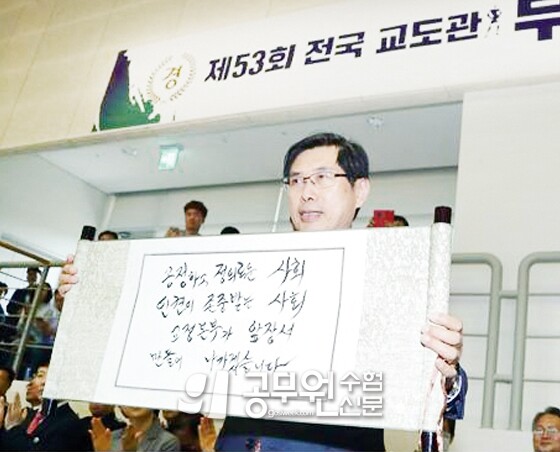 경
제53회 전국 교도관 무
공정하고 정의로운 사회
인권이 존중받는 사회
교정본부가 앞장서
만들어 나가겠습니다
공무원수험신문
gosiweek.com